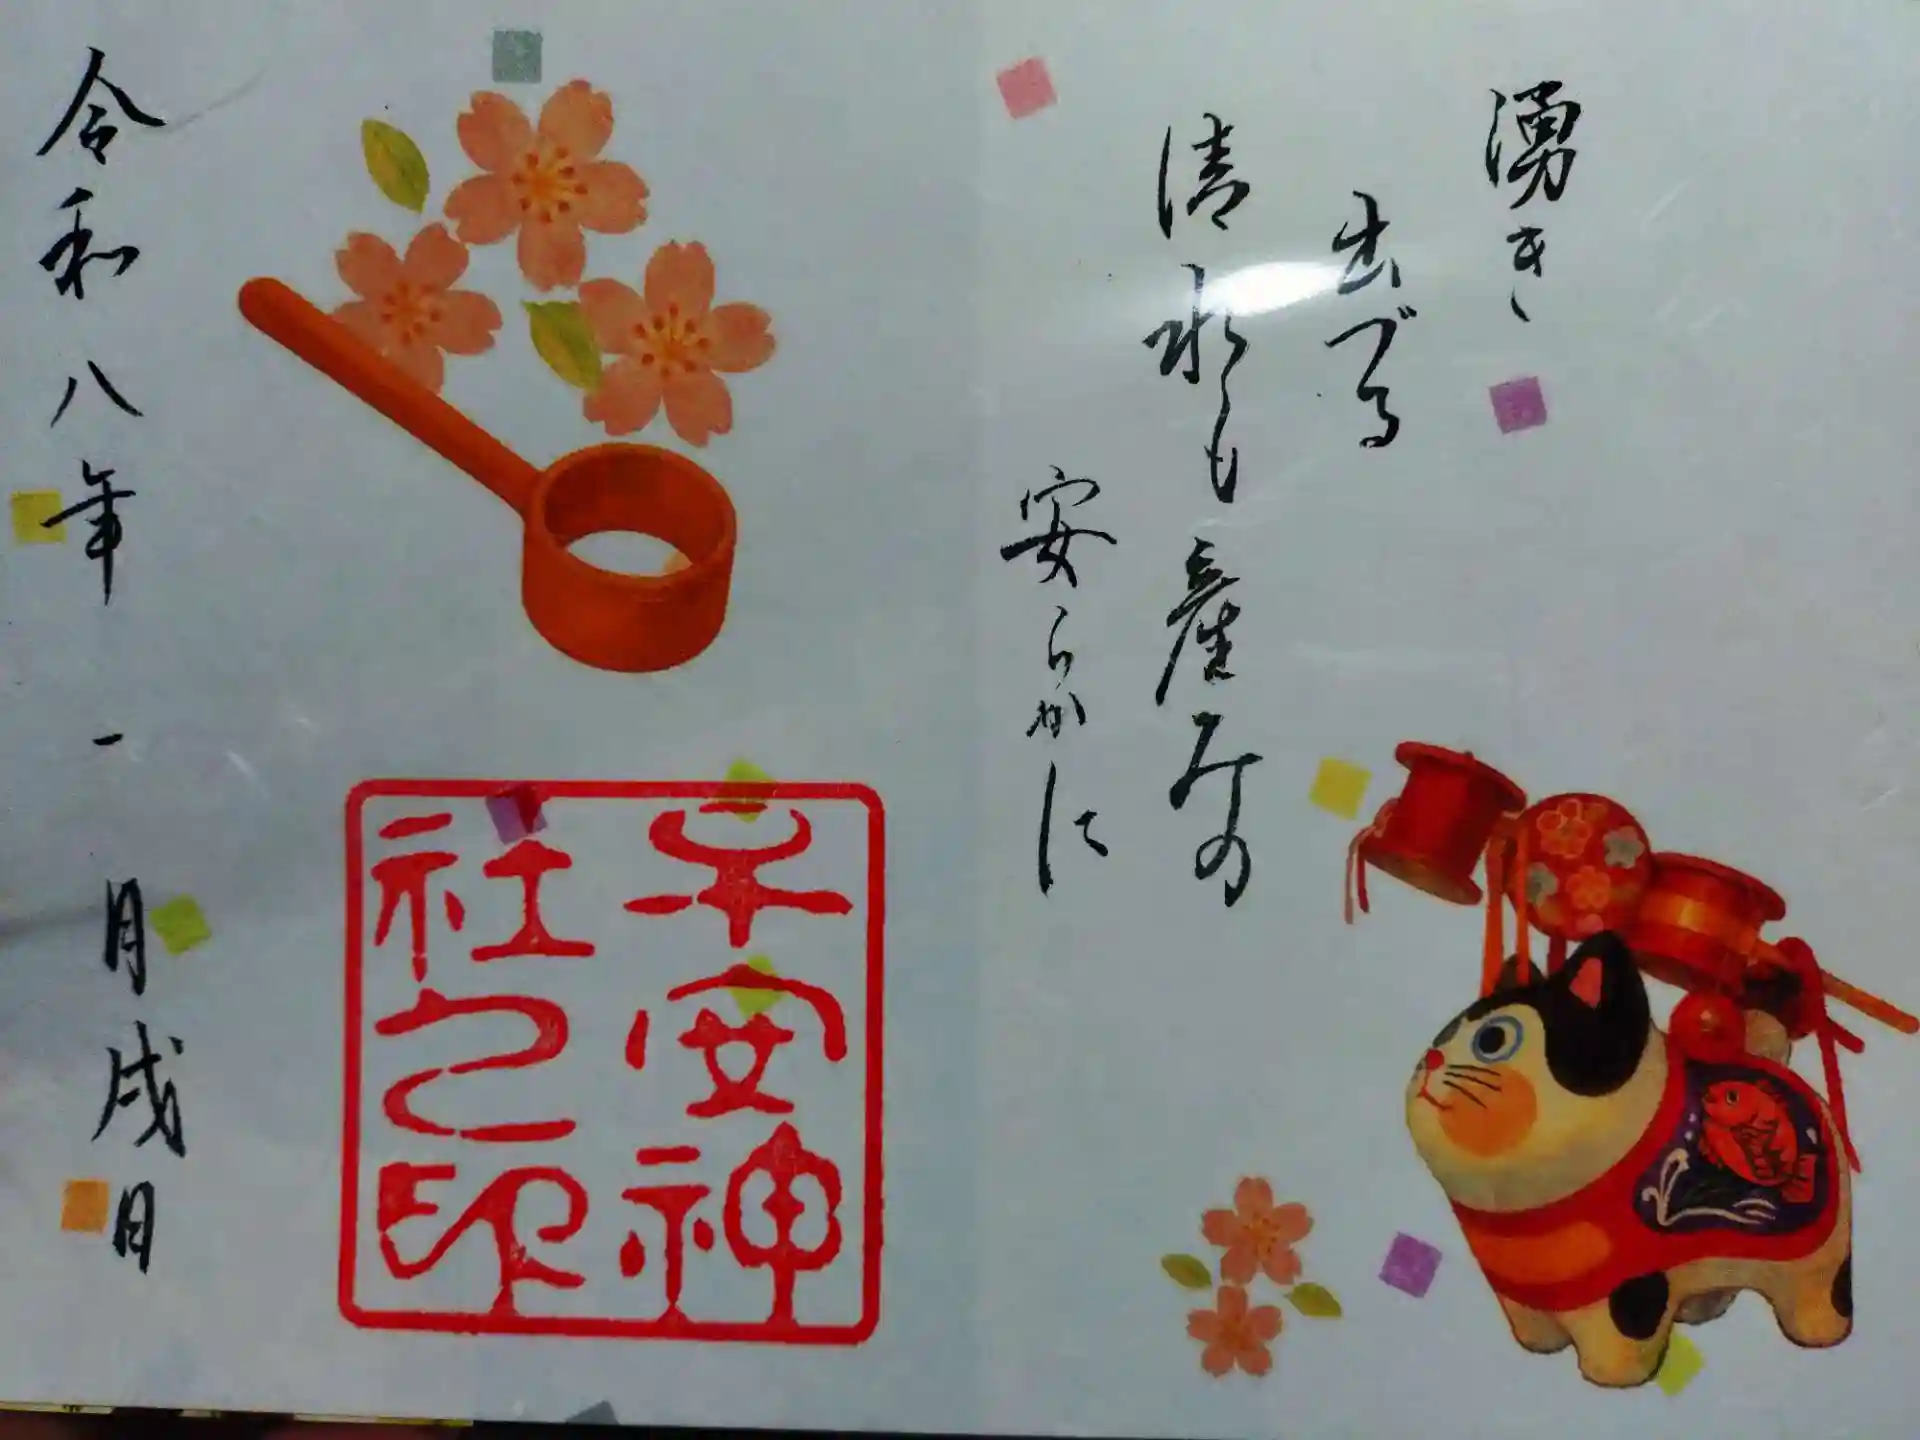 湧き
出づる
清水も産みの
安らかに
子安神
社之印
令和八年一月戌日